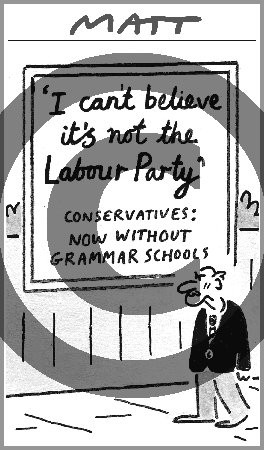 MATT
'I can't believe
it's not the
Labour Party'
CONSERVATIVES:
NOW WITHOUT
GRAMMAR SCHOOLS